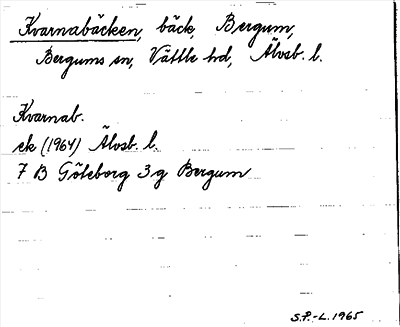 Kvarnabäcken, bäck, Bergum,
Bergums sn, Vättle hd, Älvsb. l.
Kvarnab.
ek (1964) Älvsb. l.
7 B Göteborg 3 g Bergum
S.P.-L. 1965